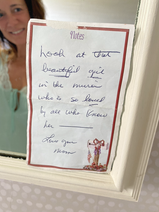 Notes
Look at that
beautiful girl
in the mirror
who is so loved
by all who know
her
Love you
Mom